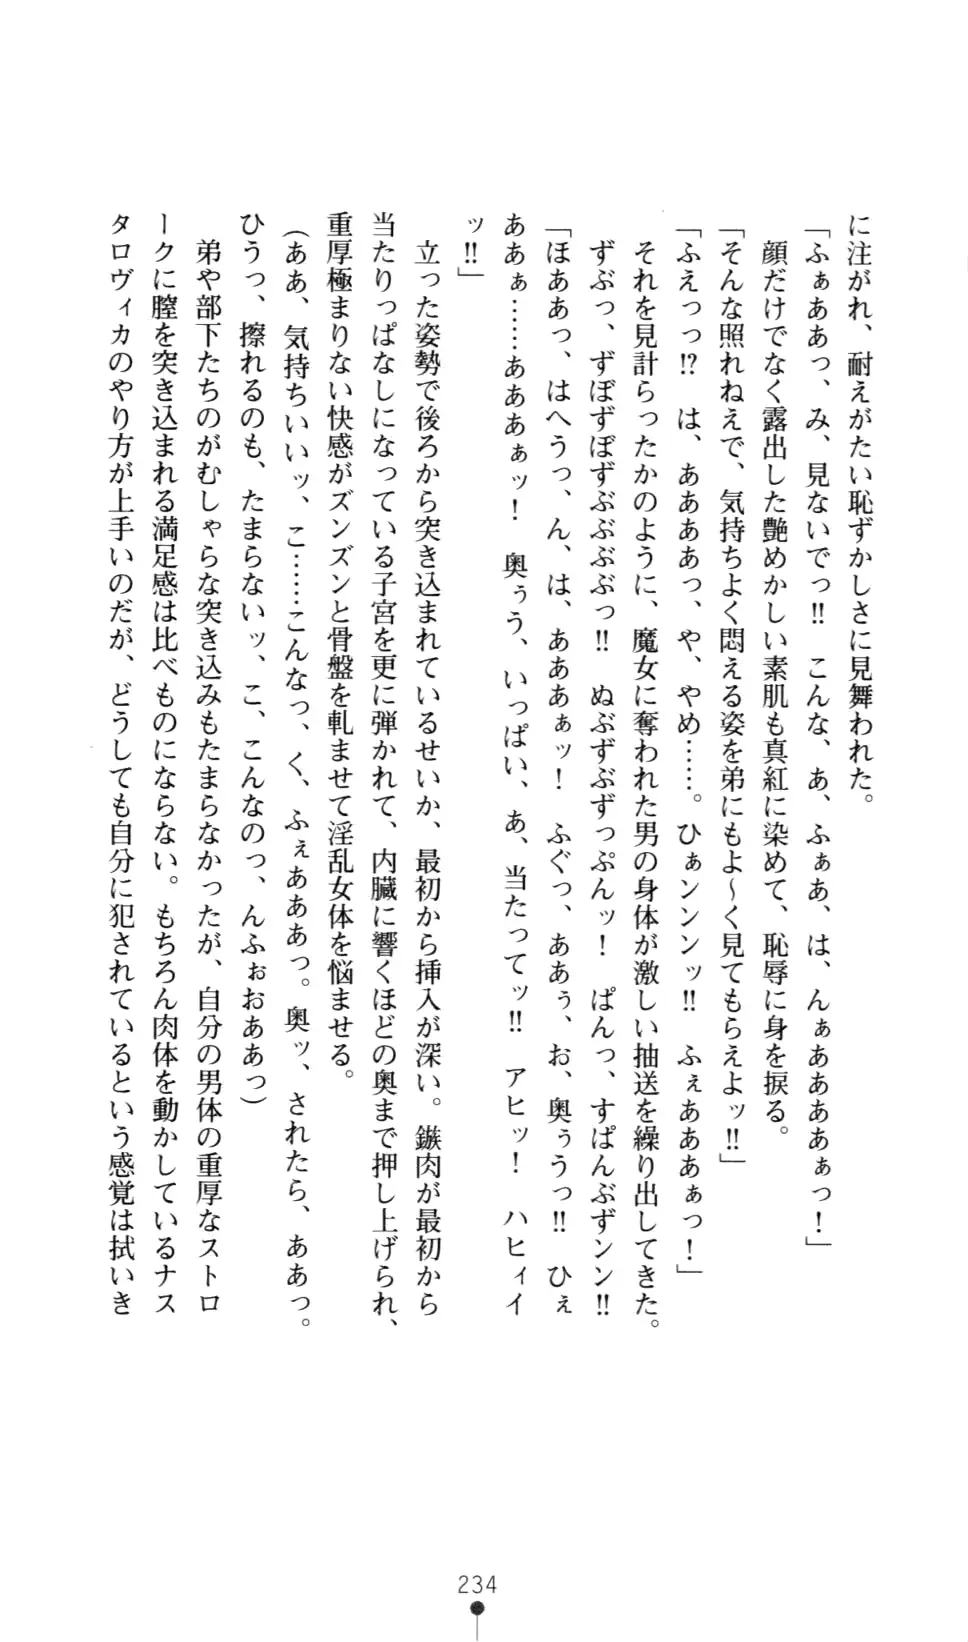 に注がれ、耐えがたい恥ずかしさに見舞われた。
「ふぁああっ、み、見ないでっ‼　こんな、あ、ふぁあ、は、んぁああああぁっ！」
　顔だけでなく露出した艶めかしい素肌も真紅に染めて、恥辱に身を捩る。
「そんな照れねえで、気持ちよく悶える姿を弟にもよ〜く見てもらえよッ‼」
「ふえっっ⁉　は、ああああっ、や、やめ……。ひぁンンンッ‼　ふぇあああぁっ！」
　それを見計らったかのように、魔女に奪われた男の身体が激しい抽送を繰り出してきた。
　ずぶっ、ずぼずぼずぶぶぶぶっ‼　ぬぶずぶずっぷんッ！　ぱんっ、すぱんぶずンン‼
「ほああっ、はへうっ、ん、は、あああぁッ！　ふぐっ、ああぅ、お、奥ぅうっ‼　ひぇ
ああぁ……あああぁッ！　奥ぅう、いっぱい、あ、当たってッ‼　アヒッ！　ハヒィイ
ッ‼」
　立った姿勢で後ろから突き込まれているせいか、最初から挿入が深い。鏃肉が最初から
当たりっぱなしになっている子宮を更に弾かれて、内臓に響くほどの奥まで押し上げられ、
重厚極まりない快感がズンズンと骨盤を軋ませて淫乱女体を悩ませる。
（ああ、気持ちいいッ、こ……こんなっ、く、ふぇあああっ。奥ッ、されたら、ああっ。
ひうっ、擦れるのも、たまらないッ、こ、こんなのっ、んふぉおああっ）
　弟や部下たちのがむしゃらな突き込みもたまらなかったが、自分の男体の重厚なストロ
ークに膣を突き込まれる満足感は比べものにならない。もちろん肉体を動かしているナス
タロヴィカのやり方が上手いのだが、どうしても自分に犯されているという感覚は拭いき
234